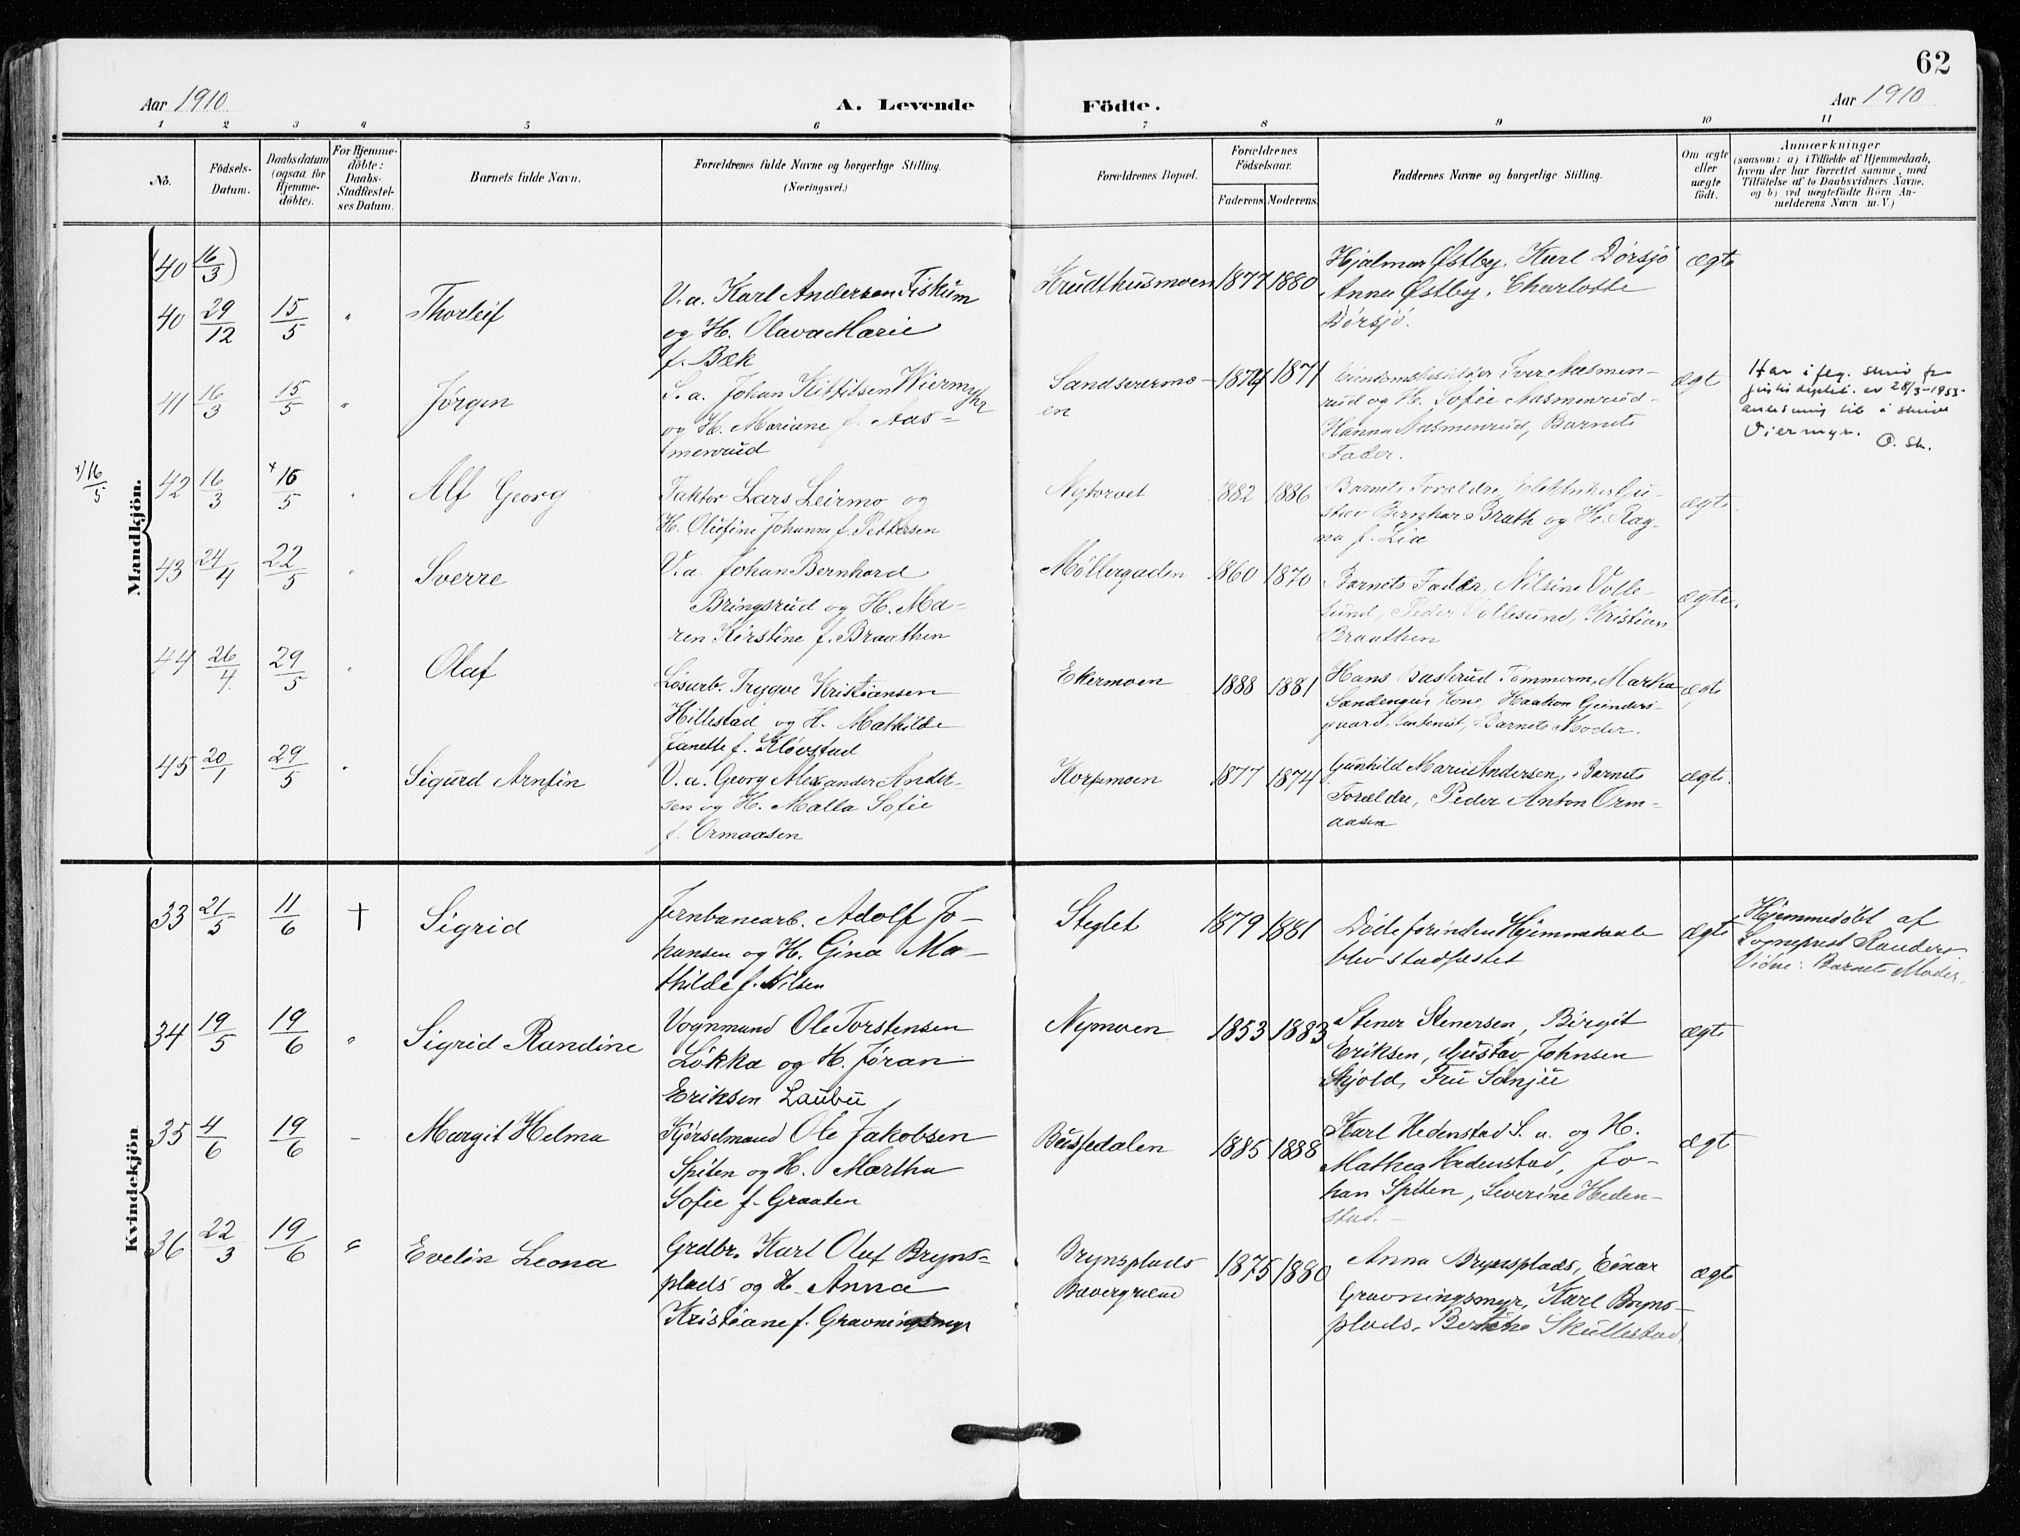 62
Aar 1910
A. Levende
Födte.
Aar 1910
1 2 3 4 5 6 7 8 9 10 11
No.
Födsels-
Datum.
Daabsdatum
(ogsaa for
Hjemme-
döbte).
For Hjemme-
döbte:
Daabs-
Stadfæstel-
ses Datum.
Barnets fulde Navn.
Forældrenes fulde Navne og borgerlige Stilling.
(Næringsvei.)
Forældrenes Bopæl.
Forældrenes
Födselsaar.
Faderens. Moderens.
Faddernes Navne og borgerlige Stilling.
Om ægte
eller
uægte
födt.
Anmærkninger
(saasom: a) i Tilfælde af Hjemmedaab,
hvem der har forrettet samme, med
Tilföielse af to Daabsvidners Navne.
og b) ved uægtefödte Börn An-
melderens Navn m. V.)
Mandkjön.
(40 16/3)
40 29/12 15/5 " Thorleif
V.a. Karl Andersen Fiskum
og H. Olava Marie
f. Bæk
Krudthusmoen 1877 1880
Hjalmar Østby, Karl Dørsjø
Anna Østby, Charlotte
Dørsjø.
ægte
41 16/3 15/5 " Jørgen
S.a. Johan Kittilsen Wiermyhr
og H. Mariane f. Aas-
menrud
Sandsværmo-
en
1874 1871
Eiendomsbesidder Iver Aasmen-
rud og H. Sofie Aasmenrud
Hanna Aasmenrud, Barnets
Fader.
ægt
Har i flg. skriv fra
justisdeptet. av 28/3-1953
anledning til å skrive
Viermyr. O. Sh.
x) 16/5
42 16/3 x 16/5 " Alf Georg
Faktor Lars Leirmo og
H. Olufine Johanne f. Pettersen
Nytorvet 1882 1886
Barnets Forældre, Elektriker Gu-
stav Bernhard Brath og H. Rag-
na f. Lia
ægte
43 24/4 22/5 " Sverre
V.a. Johan Bernhard
Bringsrud og H. Ma-
ren Kirstine f. Braathen
Møllergaden 1860 1870
Barnets Fader, Nilsine Volle-
sund, Peder Vollesund, Kristian
Braathen
ægte.
44 26/4 29/5 " Olaf
Løsarb. Trygve Kristiansen
Hillestad og H. Mathilde
Janette f. Kløvstad
Ekermoen 1888 1881
Hans Basserud Tømmerm, Martha
Sandengen Kone, Haakon Guinders-
gaard, Barnets Moder.
ægte
45 20/1 29/5 " Sigurd Arnfin
V.a. Georg Alexander Ander-
sen og H. Malla Sofie
f. Ormaasen
Korpemoen 1877 1874
Gunhild Marie Andersen, Barnets
Forældre, Peder Anton Orm-
aasen
ægte.
Kvindekjön
33 21/5 11/6 † Sigrid
Jernbanearb. Adolf Jo-
hansen og H. Gina Ma-
thilde f. Nilsen
Steglet 1879 1881
Døde førinden Hjemmedaabe
blev stadfæstet
ægte
Hjemmedøbt af
Sogneprest Randers
Vidne: Barnets Moder.
34 19/5 19/6 " Sigrid Randine
Vognmand Ole Torstensen
Løkka og H. Jøran
Eriksen Laubu
Nymoen 1853 1883
Stener Stenersen, Birgit
Eriksen, Gustav Johnsen
Skjold, Fru Sanju
ægte
35 4/6 19/6 - Margit Helma
Kjørselmand Ole Jakobsen
Spiten og H. Martha
Sofie f. Graaten
Bussedalen 1885 1888
Karl Hedenstad S.a. og H.
Mathea Hedenstad, Jo-
han Spiten, Severine Heden-
stad. -
ægt
36 22/3 19/6 " Evelin Leona
Grdbr. Karl Oluf Bryns-
plads og H. Anna
Kristiane f. Gravningsmyr
Brynsplads
Bævergræne
1875 1880
Anna Brynsplads, Einar
Gravningsmyr, Karl Bryns-
plads, Berthe Skullestad
ægte